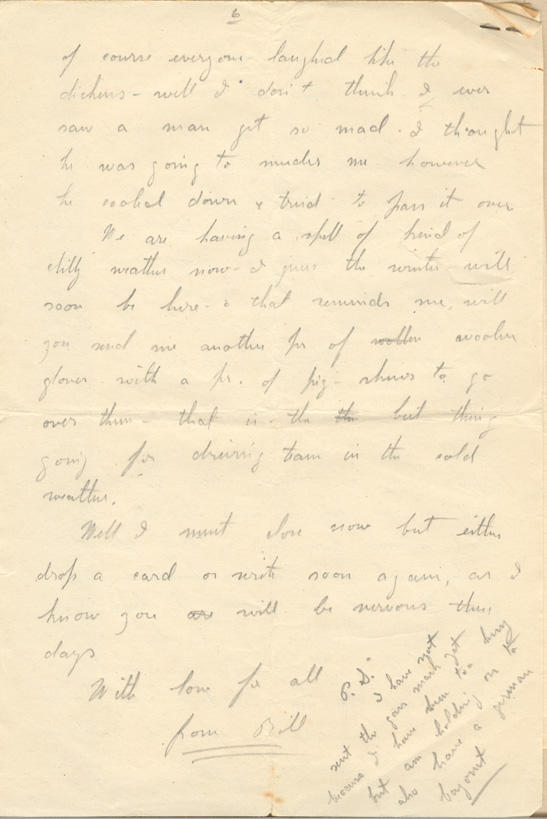 6
of course everyone laughed like the
dickens - well I don't think I ever
saw a man get so mad. I thought
he was going to murder me however
he cooled down & tried to pass it over
We are having a spell of kind of
chilly weather now - I guess the winter will
soon be here - & that reminds me, will
you send me another pr of woollen woolen
gloves with a pr. of pig - skins to go
over them - that is the the best thing
going for driving team in the cold
weather.
Well I must close now but either
drop a card or write soon again, as I
know you are will be nervous these
days
With love for all
from Bill
P.S.
I have not
sent the gas mask yet
because I have been too busy
but am holding on to
also have a german
bayonet